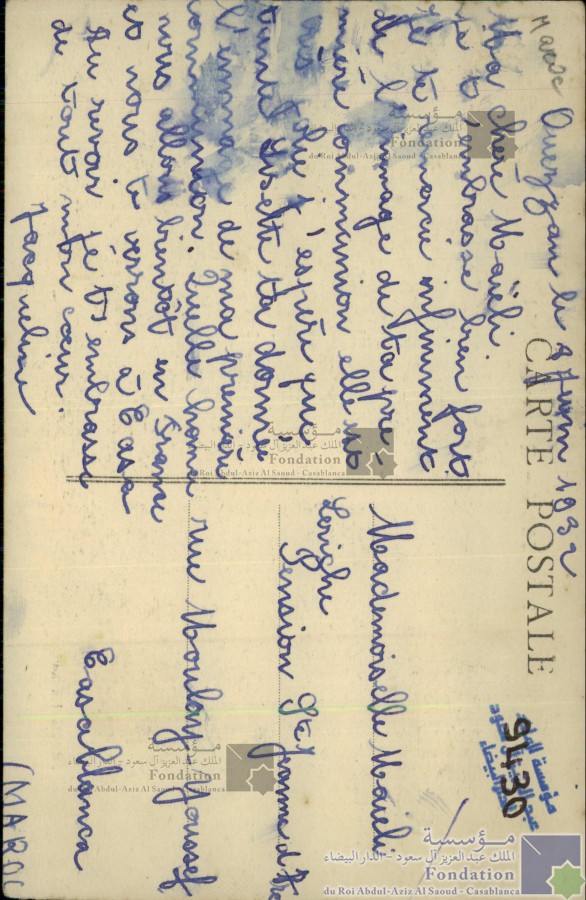 Maroc
Ouezzan le 9 Juin 1932
Ma chère Maïeli
Je t'embrasse bien fort
je te remercie infiniment
de l'image de ta pre-
mière communion elle est
très jolie j'espère que
tante Yvette t'a donné
l'image de ma première
communion. Quelle
nous allons bientôt en France
et nous te verrons à Casa
Au revoir je t'embrasse
de tout mon cœur.
Jacqueline
CARTE POSTALE
Mademoiselle Maïeli
Leriche
Pension Ste Jeanne d'Arc
rue Moulay Youssef
Casablanca
(MAROC
9430
مؤسسة
الملك عبد العزيز آل سعود - الدار البيضاء
Fondation
du Roi Abdul-Aziz Al Saoud - Casablanca
مؤسسة
الملك عبد العزيز آل سعود - الدار البيضاء
Fondation
du Roi Abdul-Aziz Al Saoud - Casablanca
مؤسسة
الملك عبد العزيز آل سعود - الدار البيضاء
Fondation
du Roi Abdul-Aziz Al Saoud - Casablanca
مؤسسة
الملك عبد العزيز آل سعود - الدار البيضاء
Fondation
du Roi Abdul-Aziz Al Saoud - Casablanca